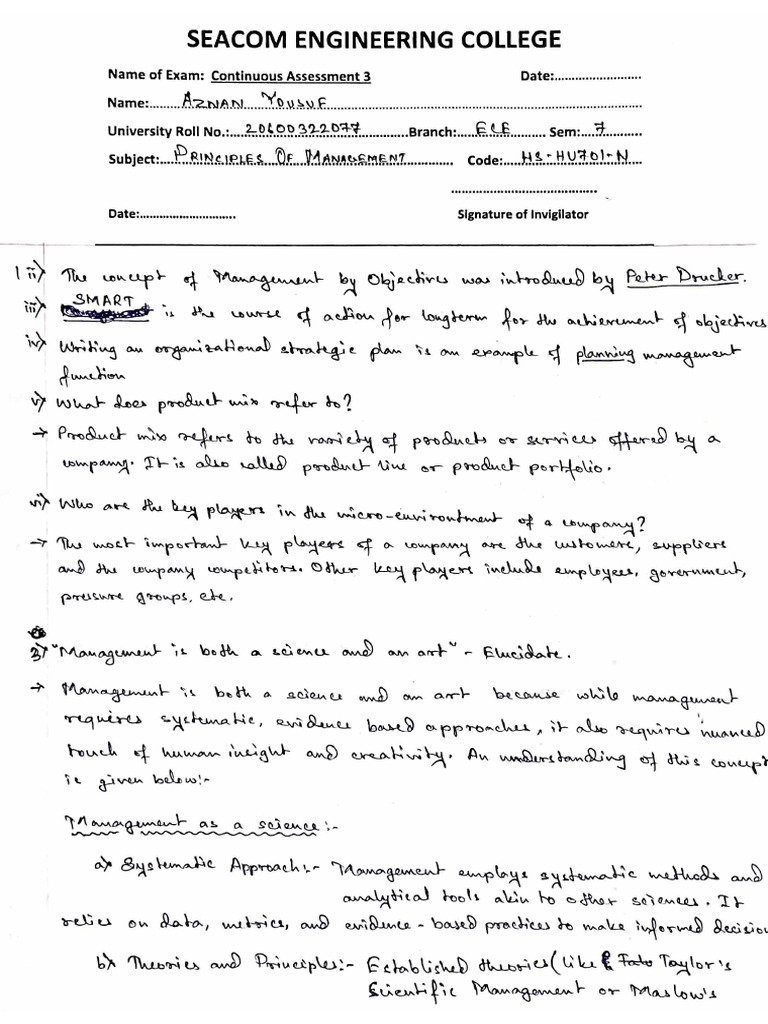 SEACOM ENGINEERING COLLEGE
Name of Exam: Continuous Assessment 3 Date:...........................
Name:.......AZNAN YOUSUF.......
University Roll No.:...20600322077...Branch:...ECE...Sem:...7...
Subject:...PRINCIPLES OF MANAGEMENT... Code:...HS-HU701-N...
.......................................
Date:........................... Signature of Invigilator
1 ii) The concept of Management by Objectives was introduced by Peter Drucker.
iii) SMART is the course of action for longterm for the achievement of objectives
iv) Writing an organizational strategic plan is an example of planning management
function
v) What does product mix refer to?
→ Product mix refers to the variety of products or services offered by a
company. It is also called product line or product portfolio.
vi) Who are the key players in the micro-environtment of a company?
→ The most important key players of a company are the customers, suppliers
and the company competitors. Other key players include employees, government,
pressure groups, etc.
3) "Management is both a science and an art" - Elucidate.
→ Management is both a science and an art because while management
requires systematic, evidence based approaches, it also requires nuanced
touch of human insight and creativity. An understanding of this concept
is given below:-
Management as a science:-
a) Systematic Approach:- Management employs systematic methods and
analytical tools akin to other sciences. It
relies on data, metrics, and evidence-based practices to make informed decision
b) Theories and Principles:- Established theories (like Taylor's
Scientific Management or Maslow's